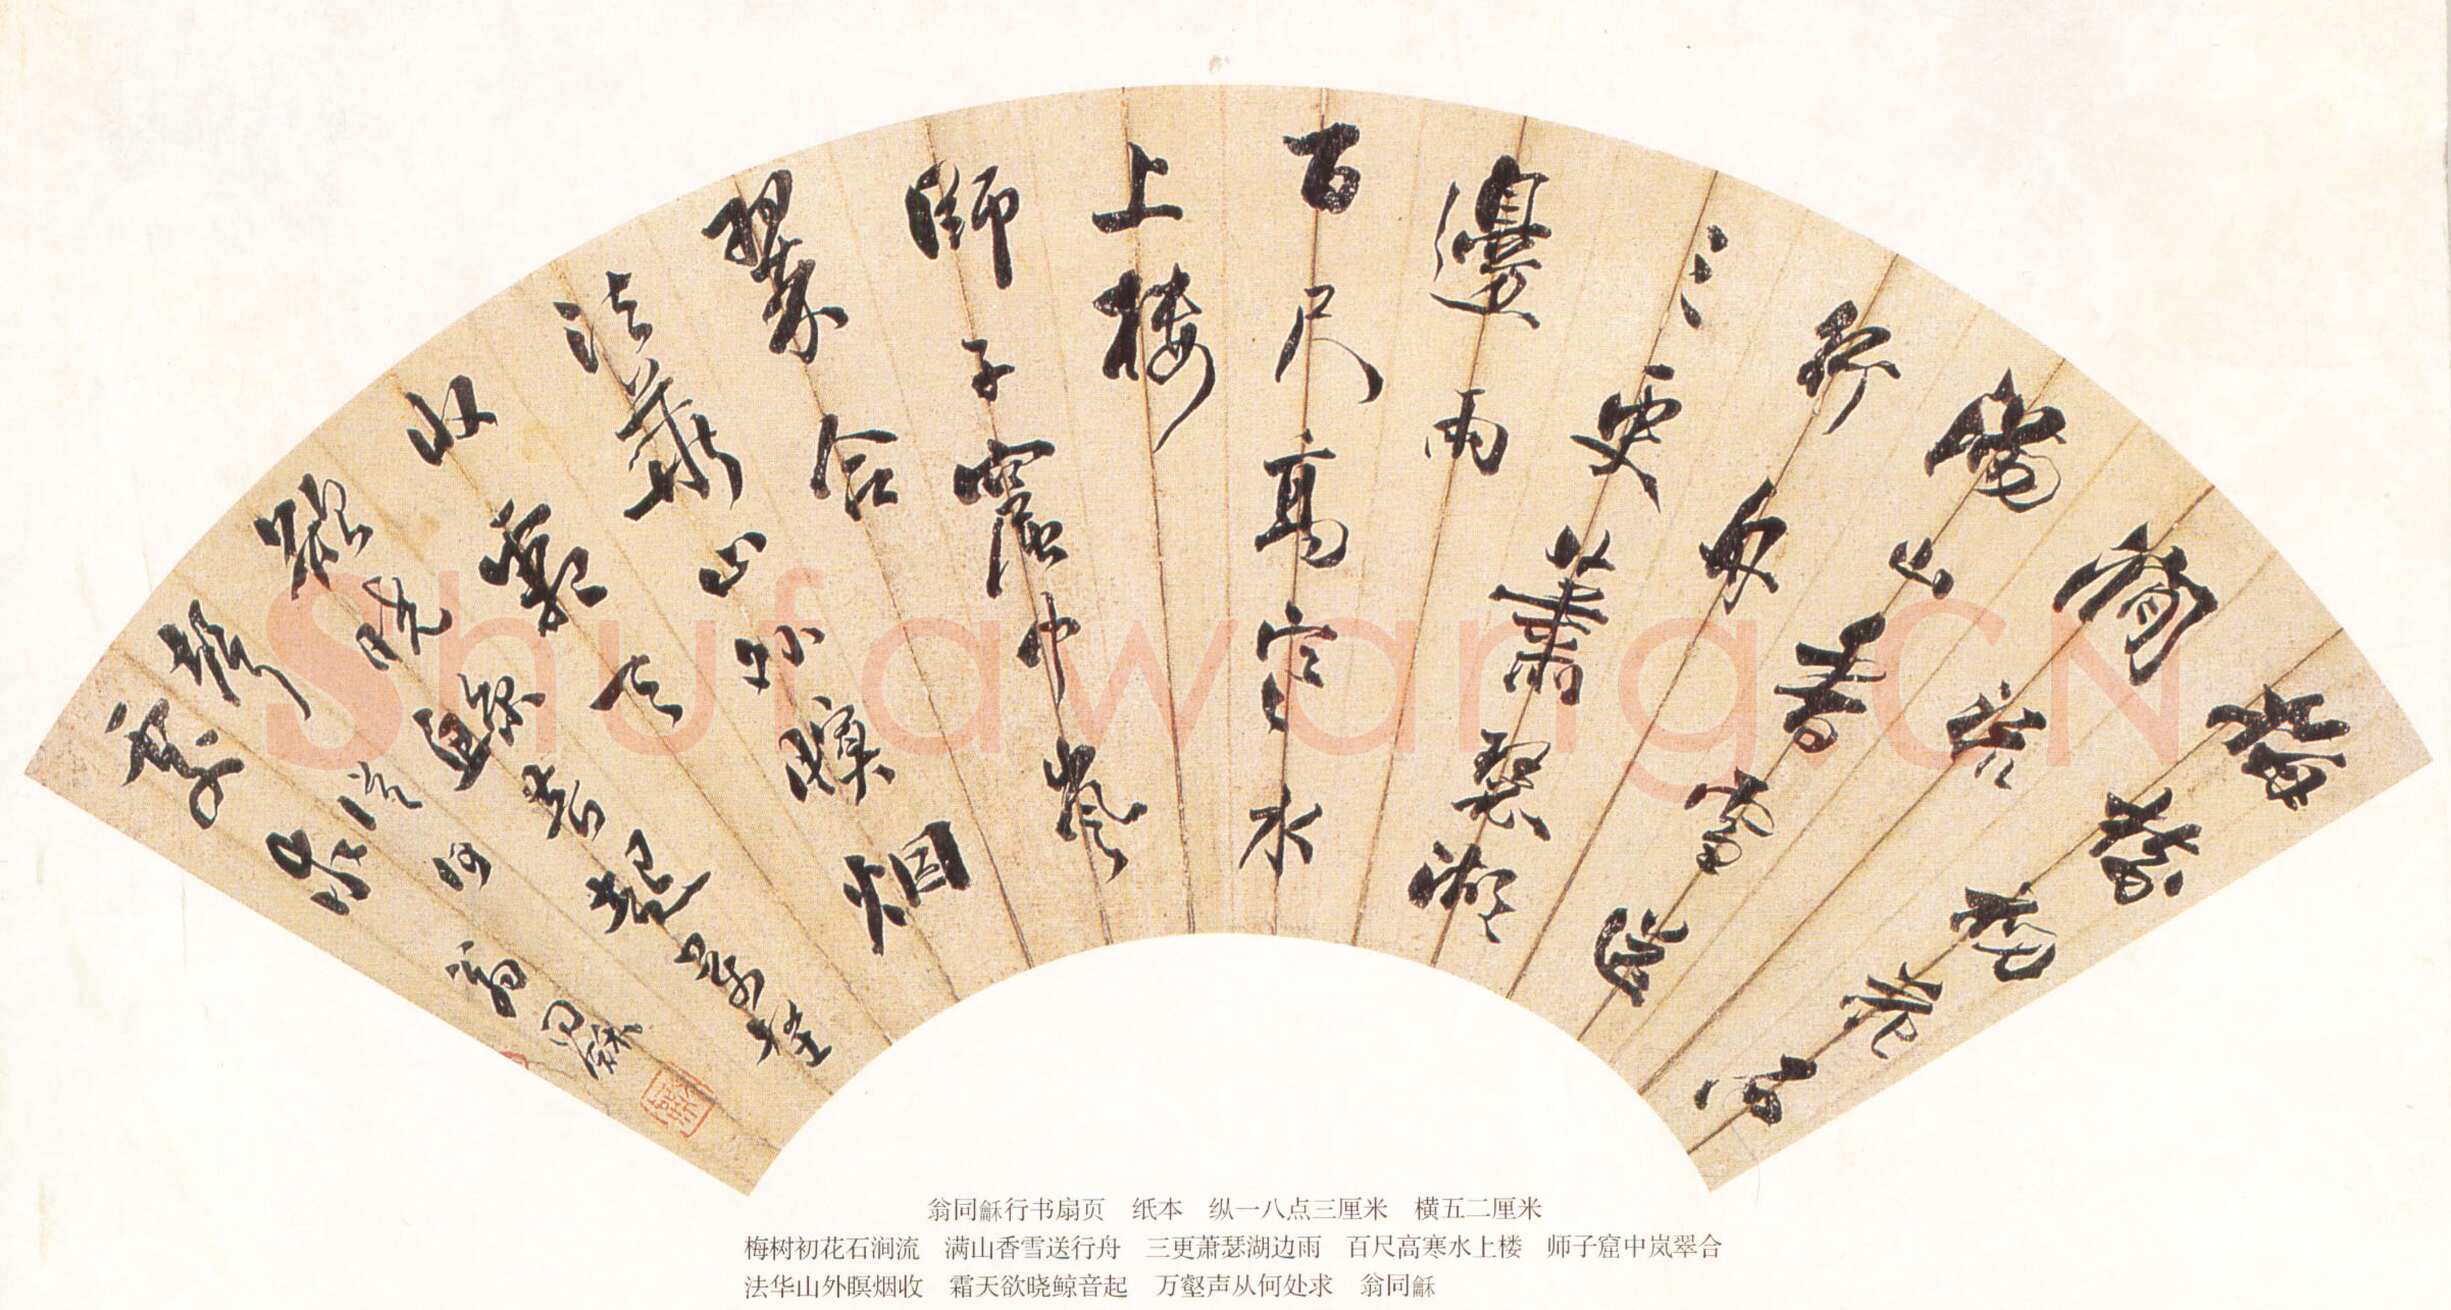 梅樹初花石
澗流
滿山香雪送
行舟
三更蕭瑟湖
邊雨
百尺高寒水
上樓
師子窟中嵐
翠合
法華山外暝烟
收霜天
欲曉鯨音起万壑
聲從何
處求翁同龢
Shufawang.CN
翁同龢行书扇页 纸本 纵一八点三厘米 横五二厘米
梅树初花石涧流 满山香雪送行舟 三更萧瑟湖边雨 百尺高寒水上楼 师子窟中岚翠合
法华山外瞑烟收 霜天欲晓鲸音起 万壑声从何处求 翁同龢